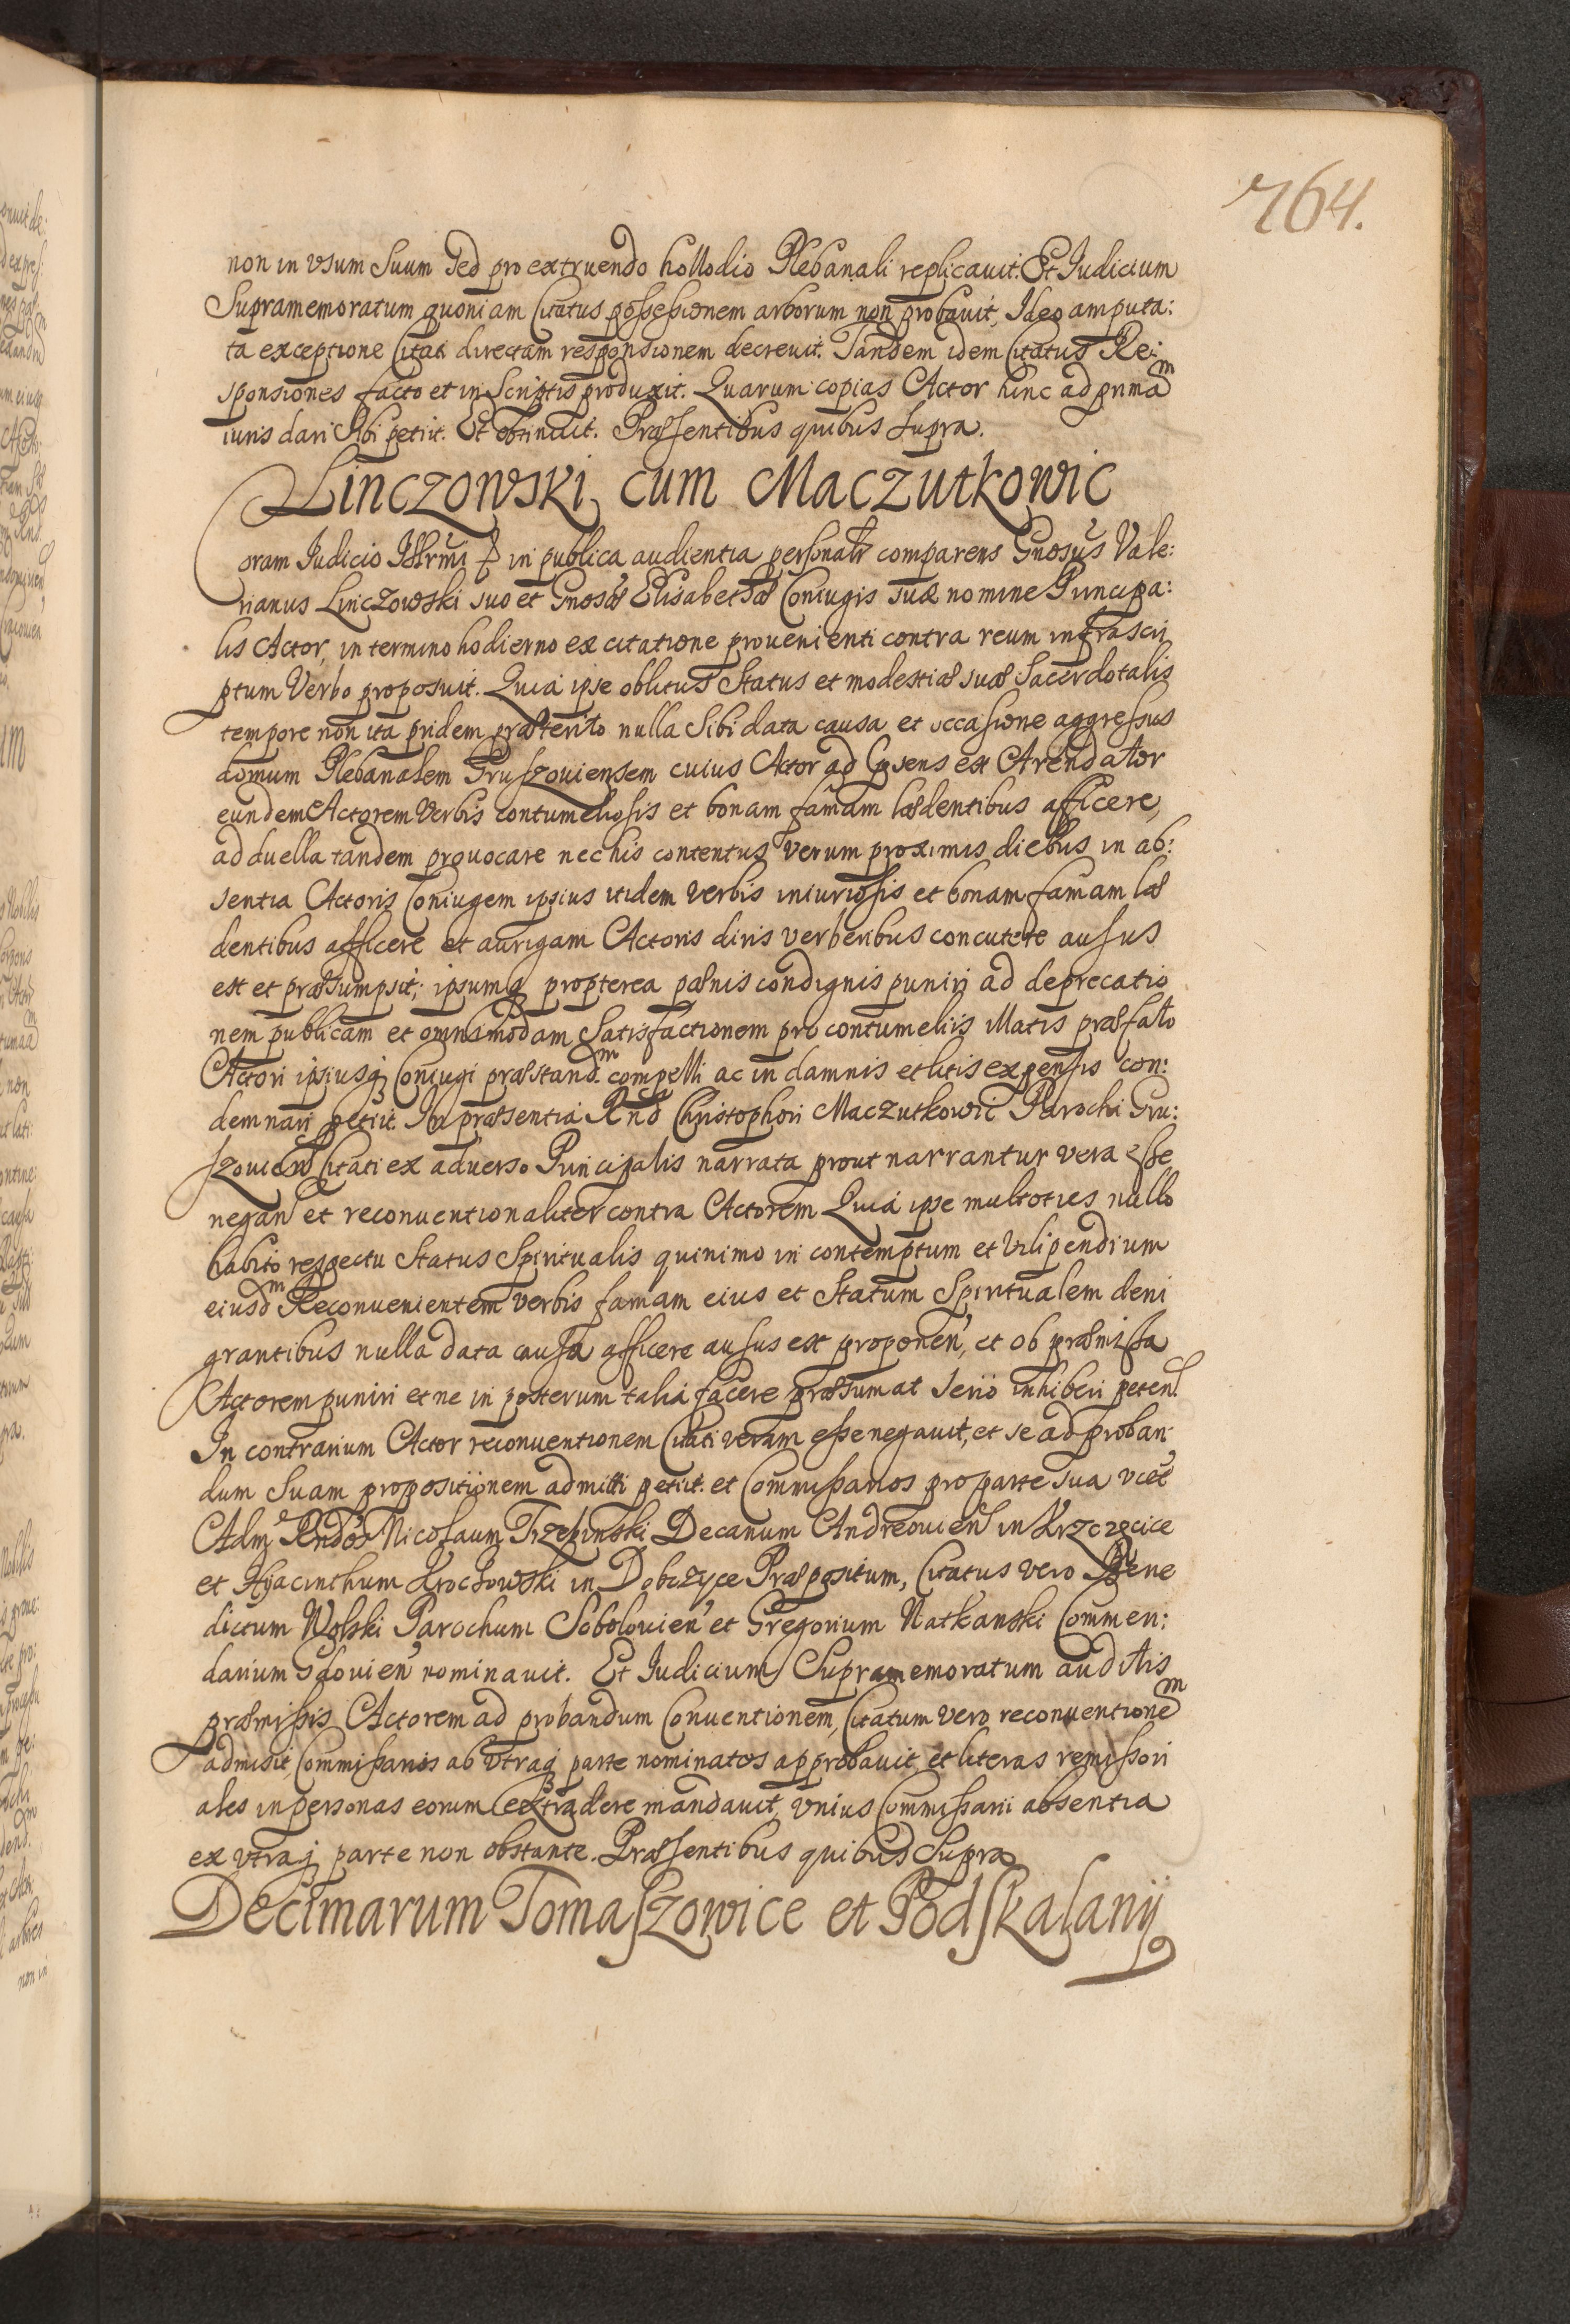 764.
non in vsum suum sed pro extruendo hollodio Plebanali replicauit. Et Iudicium
Supramemoratum quoniam Citatus possessionem arborum non probauit, Ideo amputa:
ta exceptione Citati directam responsionem decreuit. Tandem idem Citatus Re:
sponsiones facto et in Scriptis produxit. Quarum copias Actor hinc ad primam
iuris dari sibi petiit. Et obtinuit. Præsentibus quibus supra.
Linczowski cum Maczutkowic
Coram Iudicio in publica audientia personalr comparens Gnosus Vale:
rianus Linczowski suo et Gnosæ Elisabethæ Coniugis suæ nomine Principa:
lis Actor, in termino hodierno ex citatione prouenienti contra reum infrascri
ptum Verbo proposuit. Quia ipse oblitus Status et modestiæ suæ Sacerdotalis
tempore non ita pridem præterito nulla sibi data causa et occasione aggressus
domum Plebanalem Gruszouiensem cuius Actor ad præsens est Arendator
eundem Actorem Verbis contumeliosis et bonam famam lædentibus afficere,
ad duella tandem prouocare nec his contentus verum proximis diebus in ab:
sentia Actoris Coniugem ipsius itidem verbis iniuriosis et bonam famam læ
dentibus afficere et aurigam Actoris diris verberibus concutere ausus
est et præsumpsit; ipsumq propterea pænis condignis puniri ad deprecatio
nem publicam et omnimodam Satisfactionem pro contumeliis illatis præfato
Actori ipsiusq Coniugi præstandm compelli ac in damnis et litis expensis con:
demnari petiit. In præsentia Rnd Christophori Maczutkowic Parochi Gru:
szouien Citati ex aduerso Principalis narrata prout narrantur vera esse
negan et reconuentionaliter contra Actorem Quia ipse multoties nullo
habito respectu Status Spiritualis quinimo in contemptum et vilipendium
eiusdm Reconuenientem verbis famam eius et Statum Spiritualem deni
grantibus nulla data causa afficere ausus est proponen, et ob præmissa
Actorem puniri et ne in posterum talia facere præsumat serio inhiberi peten.
In contrarium Actor reconuentionem Citati veram esse negauit, et se ad proban
dum suam propositionem admitti petiit. et Commissarios pro parte sua vcet
Adm Rndos Nicolaum Trzebinski Decanum Andreouien in Krzczecice
et Hyacinthum Krochowski in Dobczyce Præpositum, Citatus vero Bene
dictum Wolski Parochum Sobolouien et Gregorium Natkanski Commen:
darium Sdouien nominauit. Et Iudicium Supramemoratum auditis
præmissis Actorem ad probandum Conuentionem, Citatum vero reconuentionem
admisit, Commissarios ab vtraq parte nominatos approbauit et literas remissori
ales in personas eorum extradere mandauit, vnius Commissarii absentia
ex vtraq parte non obstante. Præsentibus quibus Supra
Decimarum Tomaszowice et Podskalany